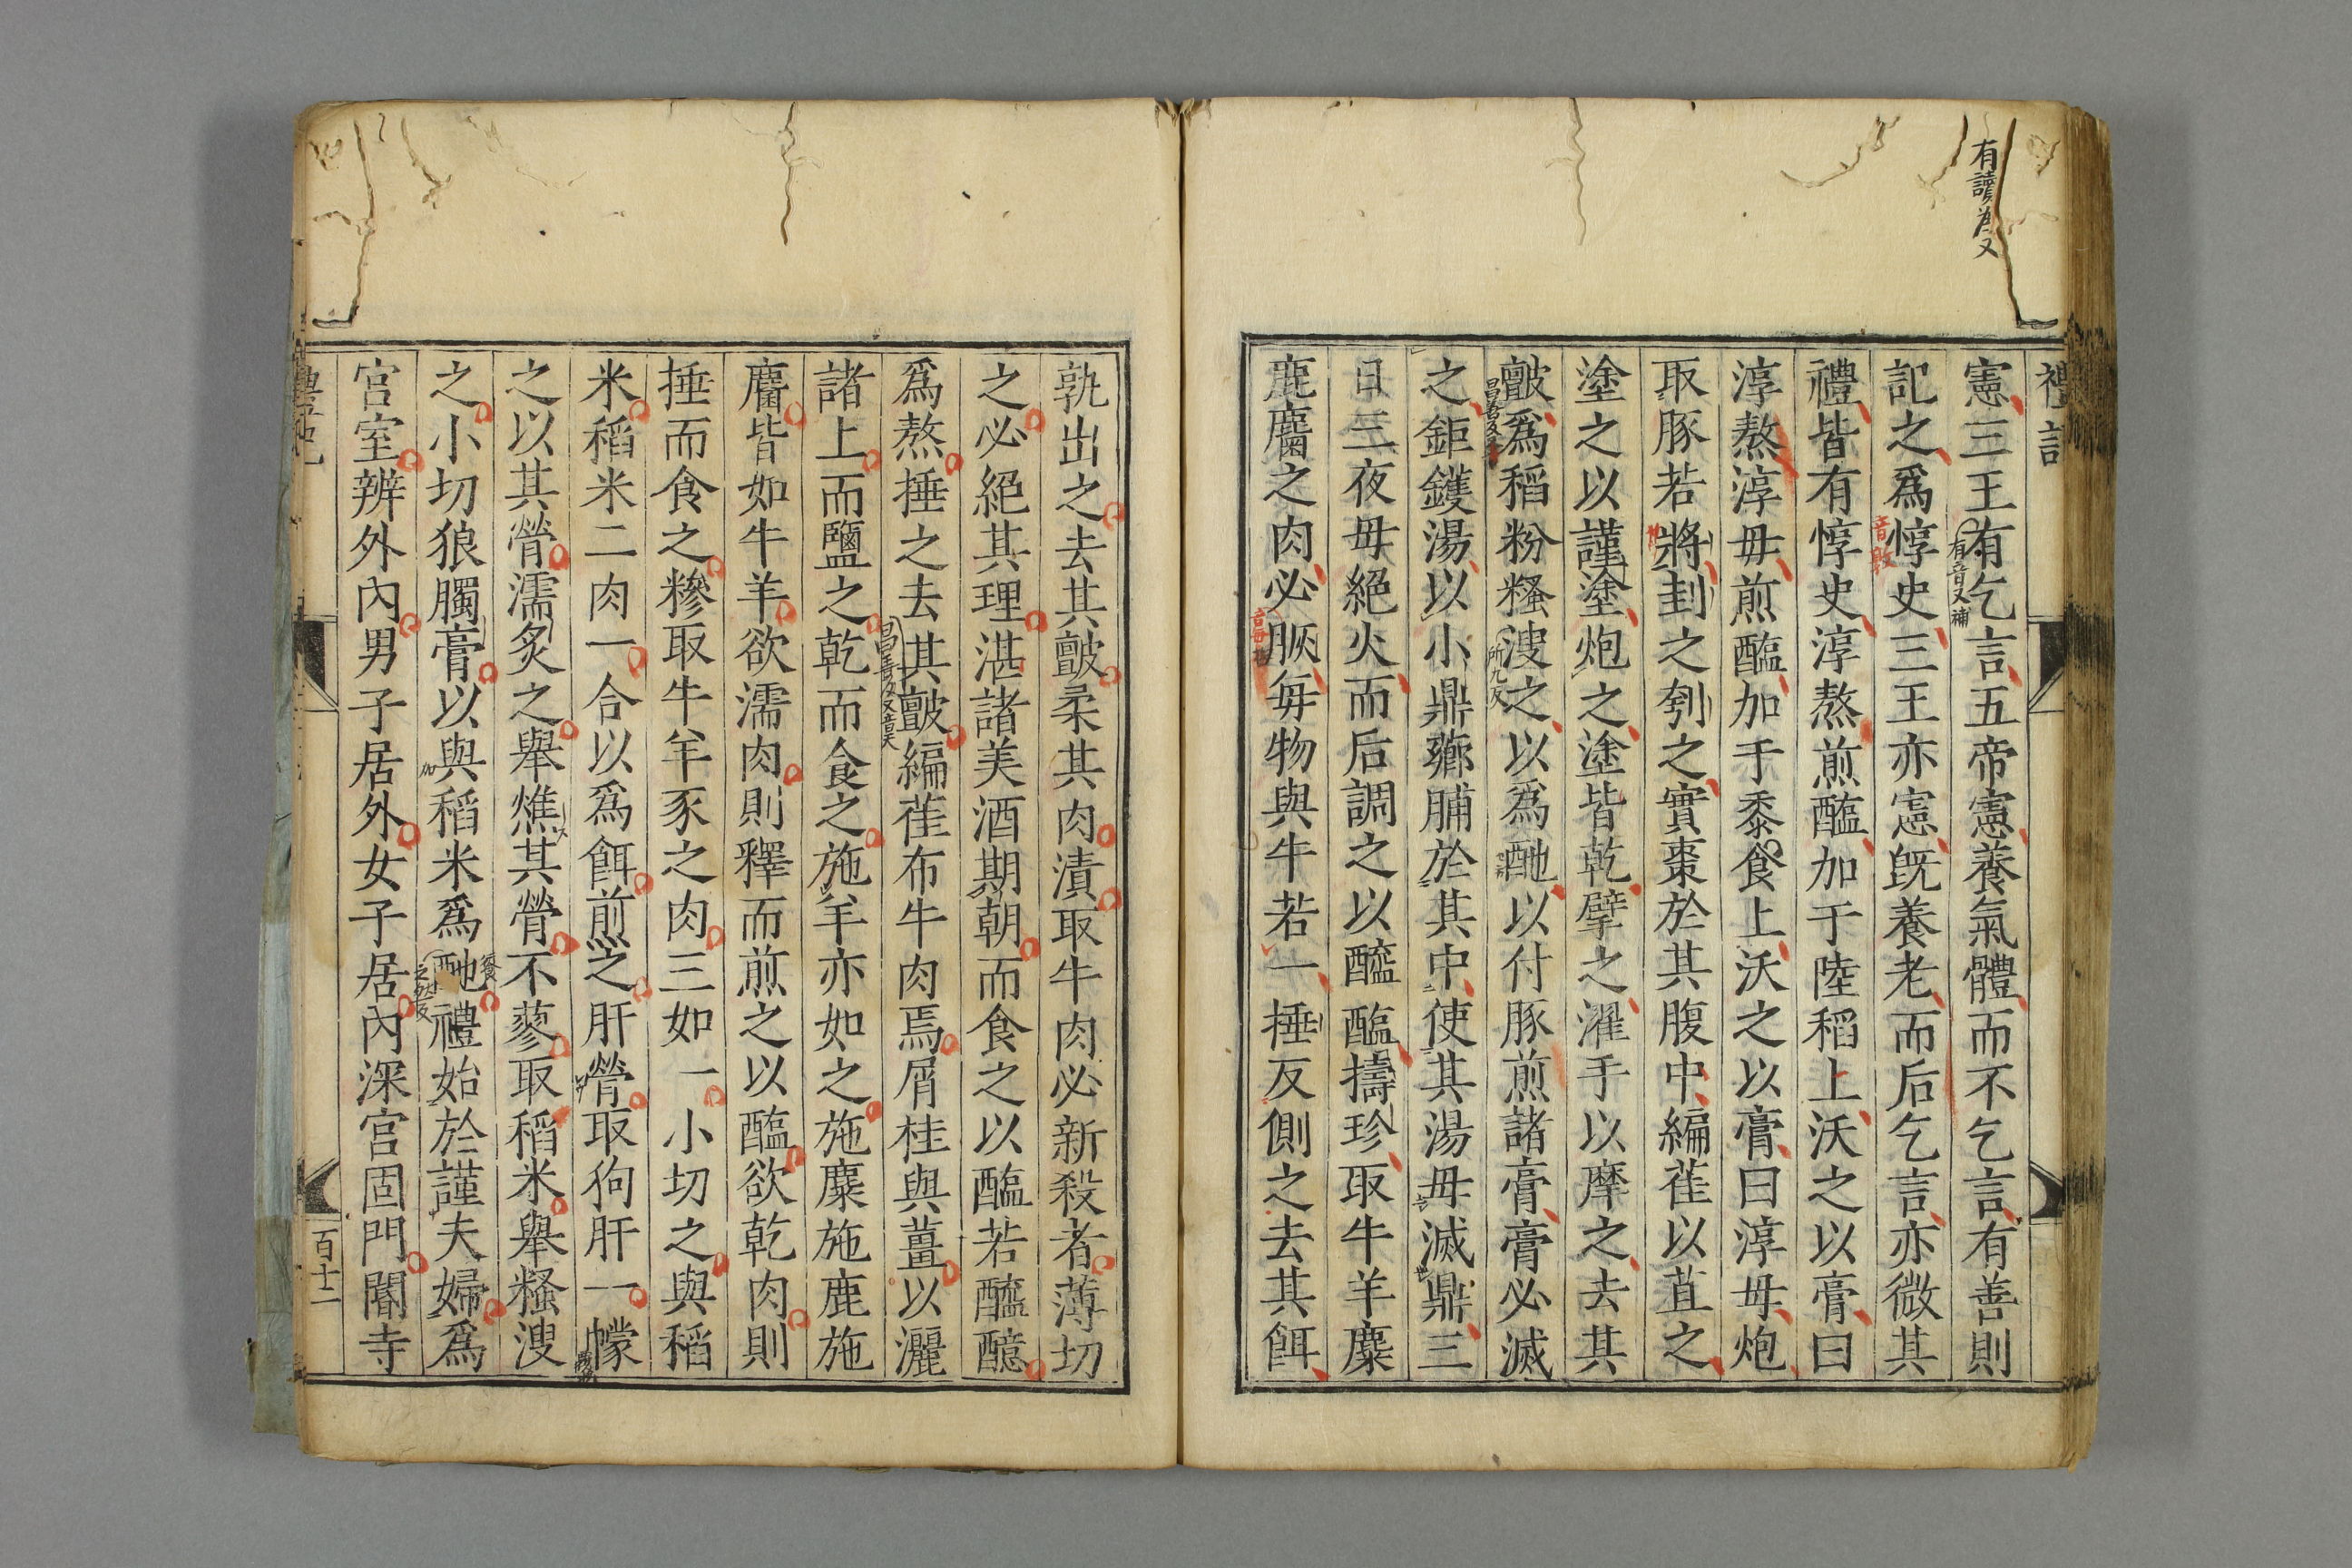 禮記
憲三王有乞言五帝憲養氣體而不乞言有善則
記之爲惇史三王亦憲既養老而后乞言亦微其
禮皆有惇史淳熬煎醢加于陸稻上沃之以膏曰
淳熬淳毋煎醢加于黍食上沃之以膏曰淳毋炮
取豚若將刲之刳之實棗於其腹中編萑以苴之
塗之以謹塗炮之塗皆乾擘之濯手以摩之去其
皽爲稻粉糔溲之以爲酏以付豚煎諸膏膏必滅
之鉅鑊湯以小鼎薌脯於其中使其湯毋滅鼎三
日三夜毋絕火而后調之以醯醢擣珍取牛羊麋
鹿麕之肉必脄每物與牛若一捶反側之去其餌
孰出之去其皽柔其肉漬取牛肉必新殺者薄切
之必絕其理湛諸美酒期朝而食之以醢若醯醷
爲熬捶之去其皽編萑布牛肉焉屑桂與薑以灑
諸上而鹽之乾而食之施羊亦如之施麋施鹿施
麕皆如牛羊欲濡肉則釋而煎之以醢欲乾肉則
捶而食之糝取牛羊豕之肉三如一小切之與稻
米稻米二肉一合以爲餌煎之肝膋取狗肝一幪
之以其膋濡炙之舉燋其膋不蓼取稻米舉糔溲
之小切狼臅膏以與稻米爲酏禮始於謹夫婦爲
宮室辨外內男子居外女子居內深宮固門閽寺
百十二
有讀為又
有音又補
音敦
所九反